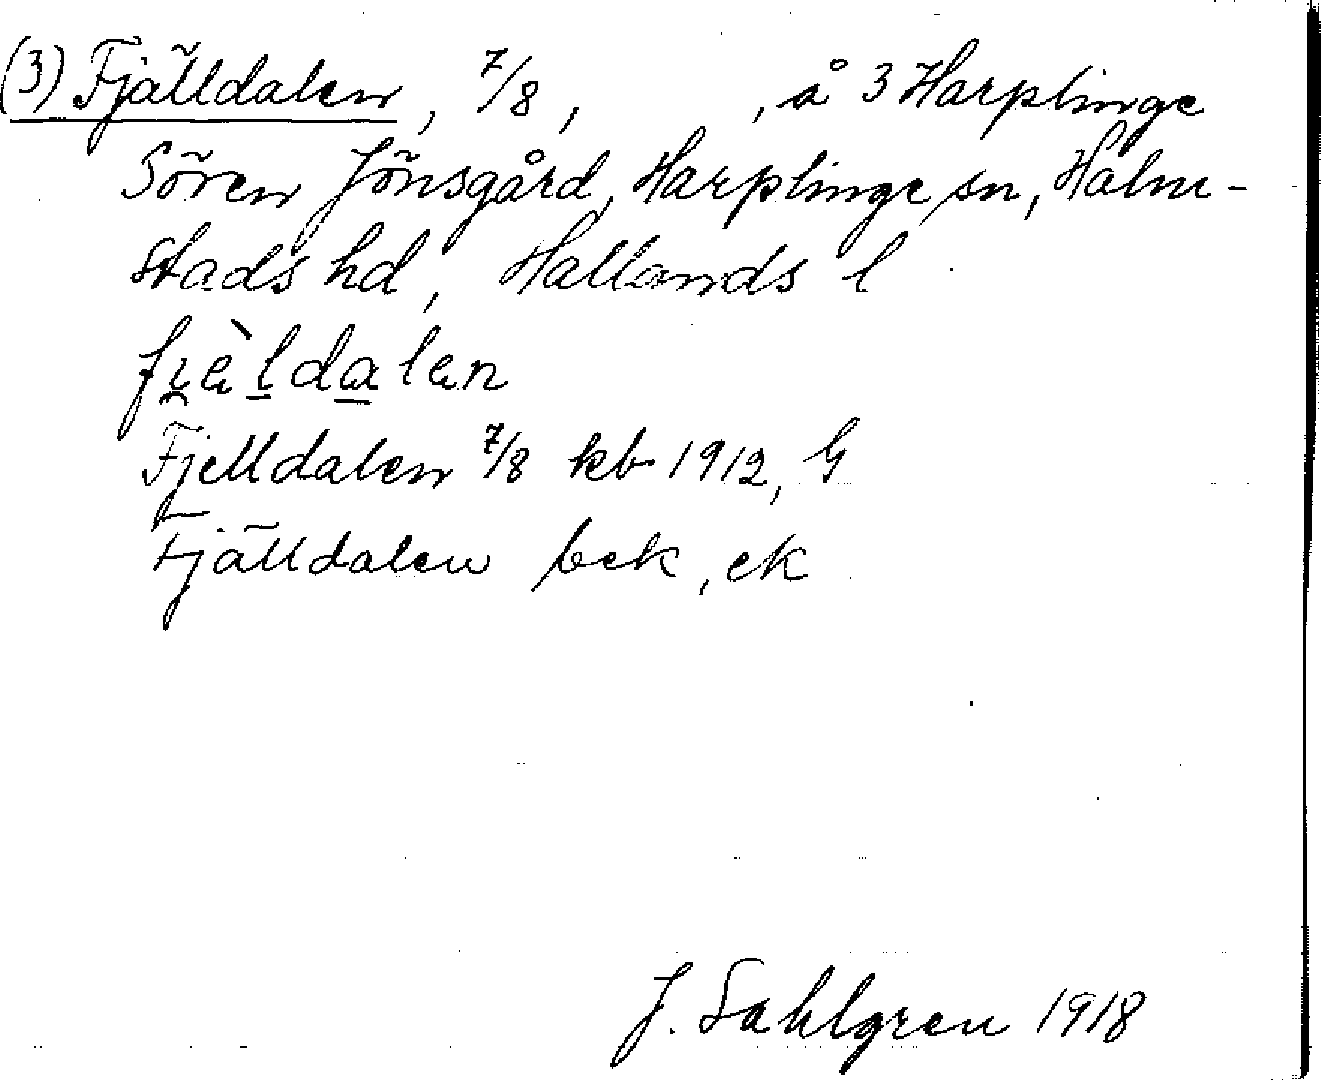 (3) Fjälldalen, 7/8, , å 3 Harplinge
Sören Jönsgård, Harplinge sn, Halm-
stads hd, Hallands l
fi̯æ̀ldalen
Fjelldalen 7/8 kb 1912, G
Fjälldalen bek, ek
J. Sahlgren 1918